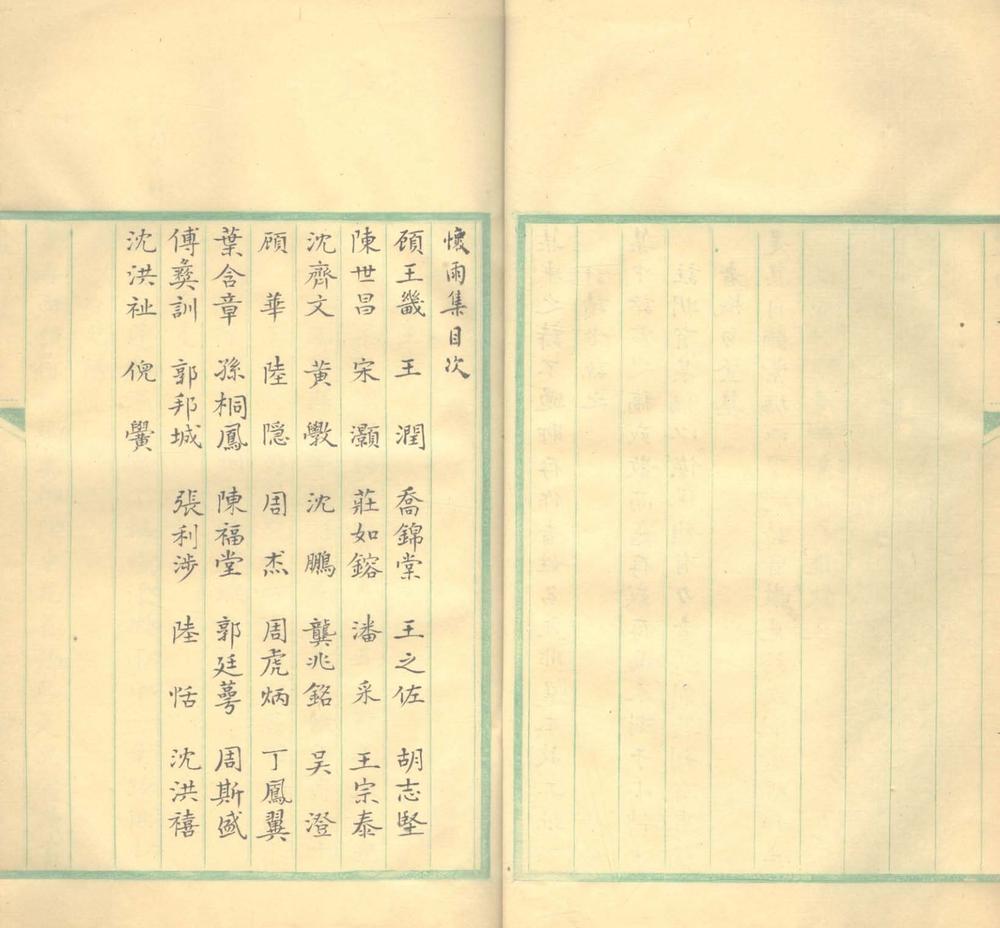 懷雨集目次
顧王畿 王潤 喬錦棠 王之佐 胡志堅
陳世昌 宋灝 莊如鎔 潘采 王宗泰
沈齊文 黃斆 沈鵬 龔兆銘 吴澄
顧華 陸隱 周杰 周虎炳 丁鳳翼
葉含章 孫桐鳳 陳福堂 郭廷蕚 周斯盛
傅彝訓 郭邦城 張利涉 陸恬 沈洪禧
沈洪祉 倪黌